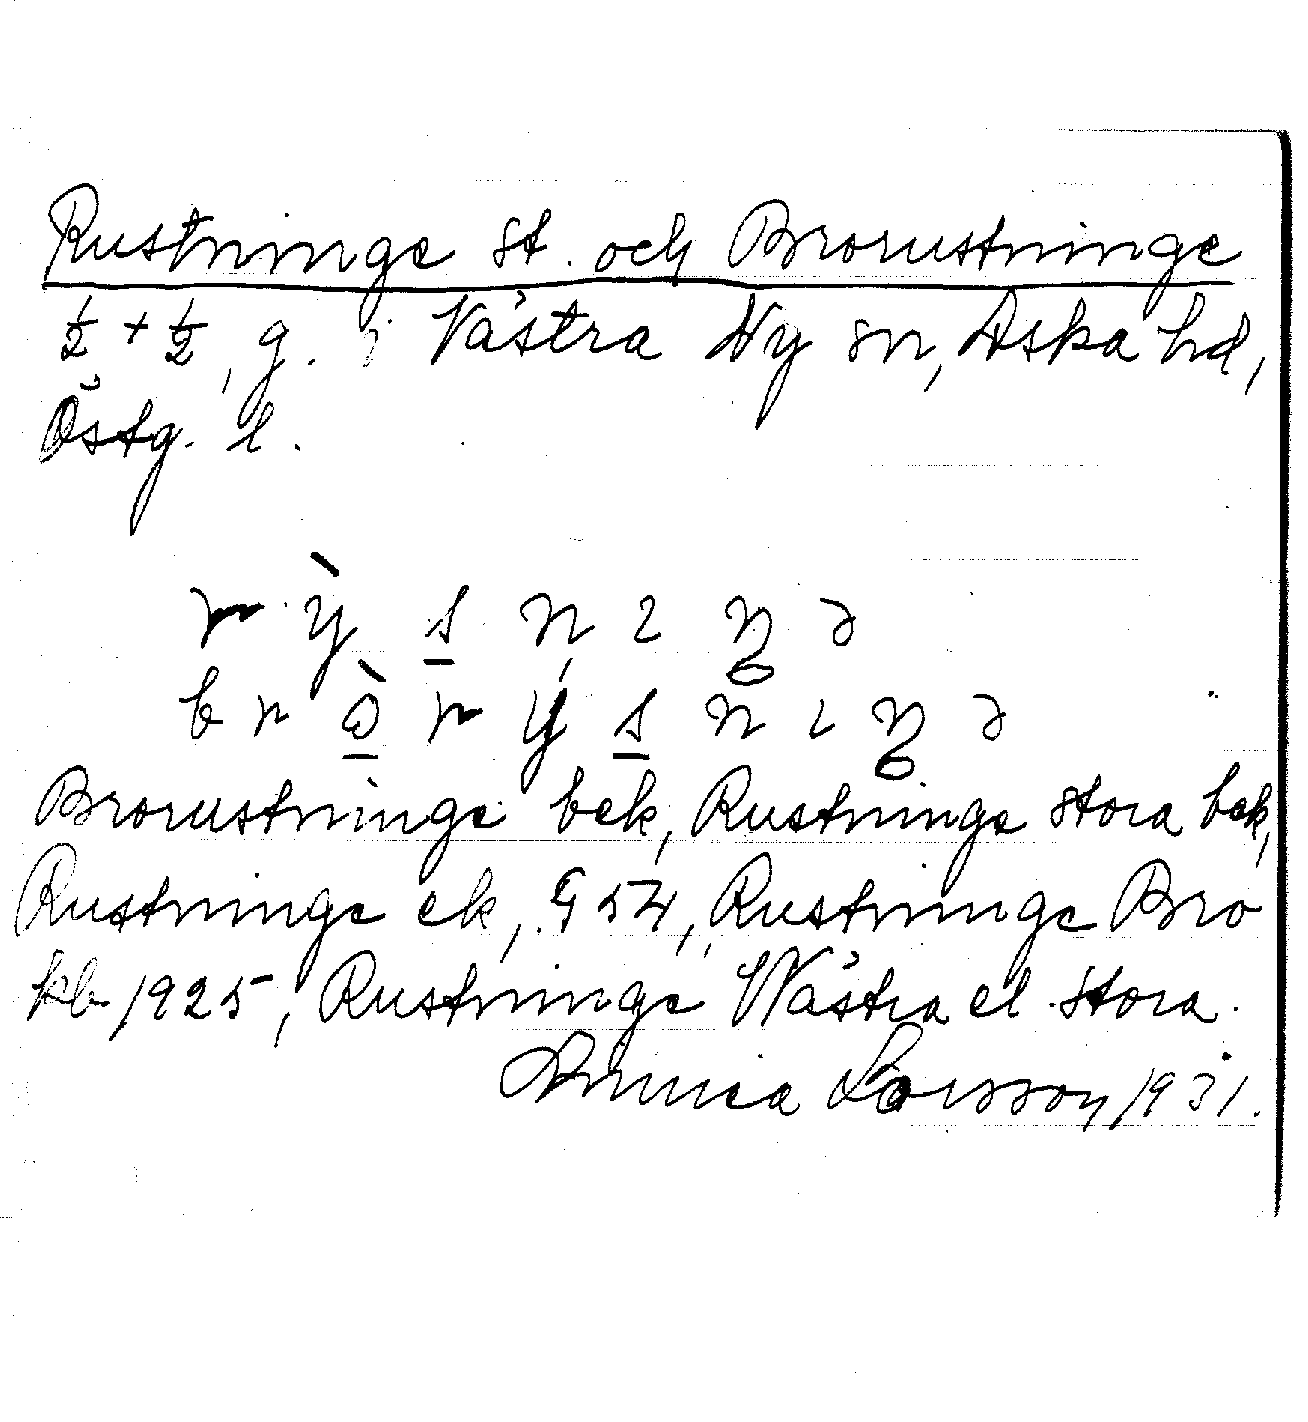 Rustninge st. och Brorustninge
½ + ½, g. i Västra Ny sn, Aska hd,
Östg. l.
r ỳ s n ı ŋ ə
b r ò r y s n ı ŋ ə
Brorustninge bek, Rustninge stora bek,
Rustninge ek, G 54, Rustninge Bro
kb 1925, Rustninge Västra el. Stora.
Larsson 1931.